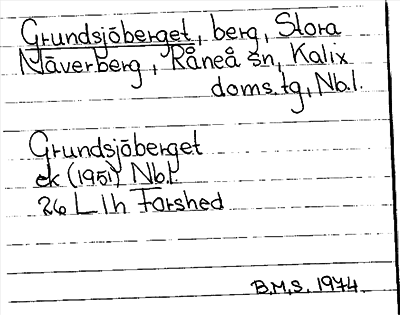 Grundsjöberget, berg, Stora
Näverberg, Råneå sn, Kalix
doms.tg, Nb.l.
Grundsjöberget
ek (1951) Nb.l.
26 L 1h Forshed
B.M.S. 1974